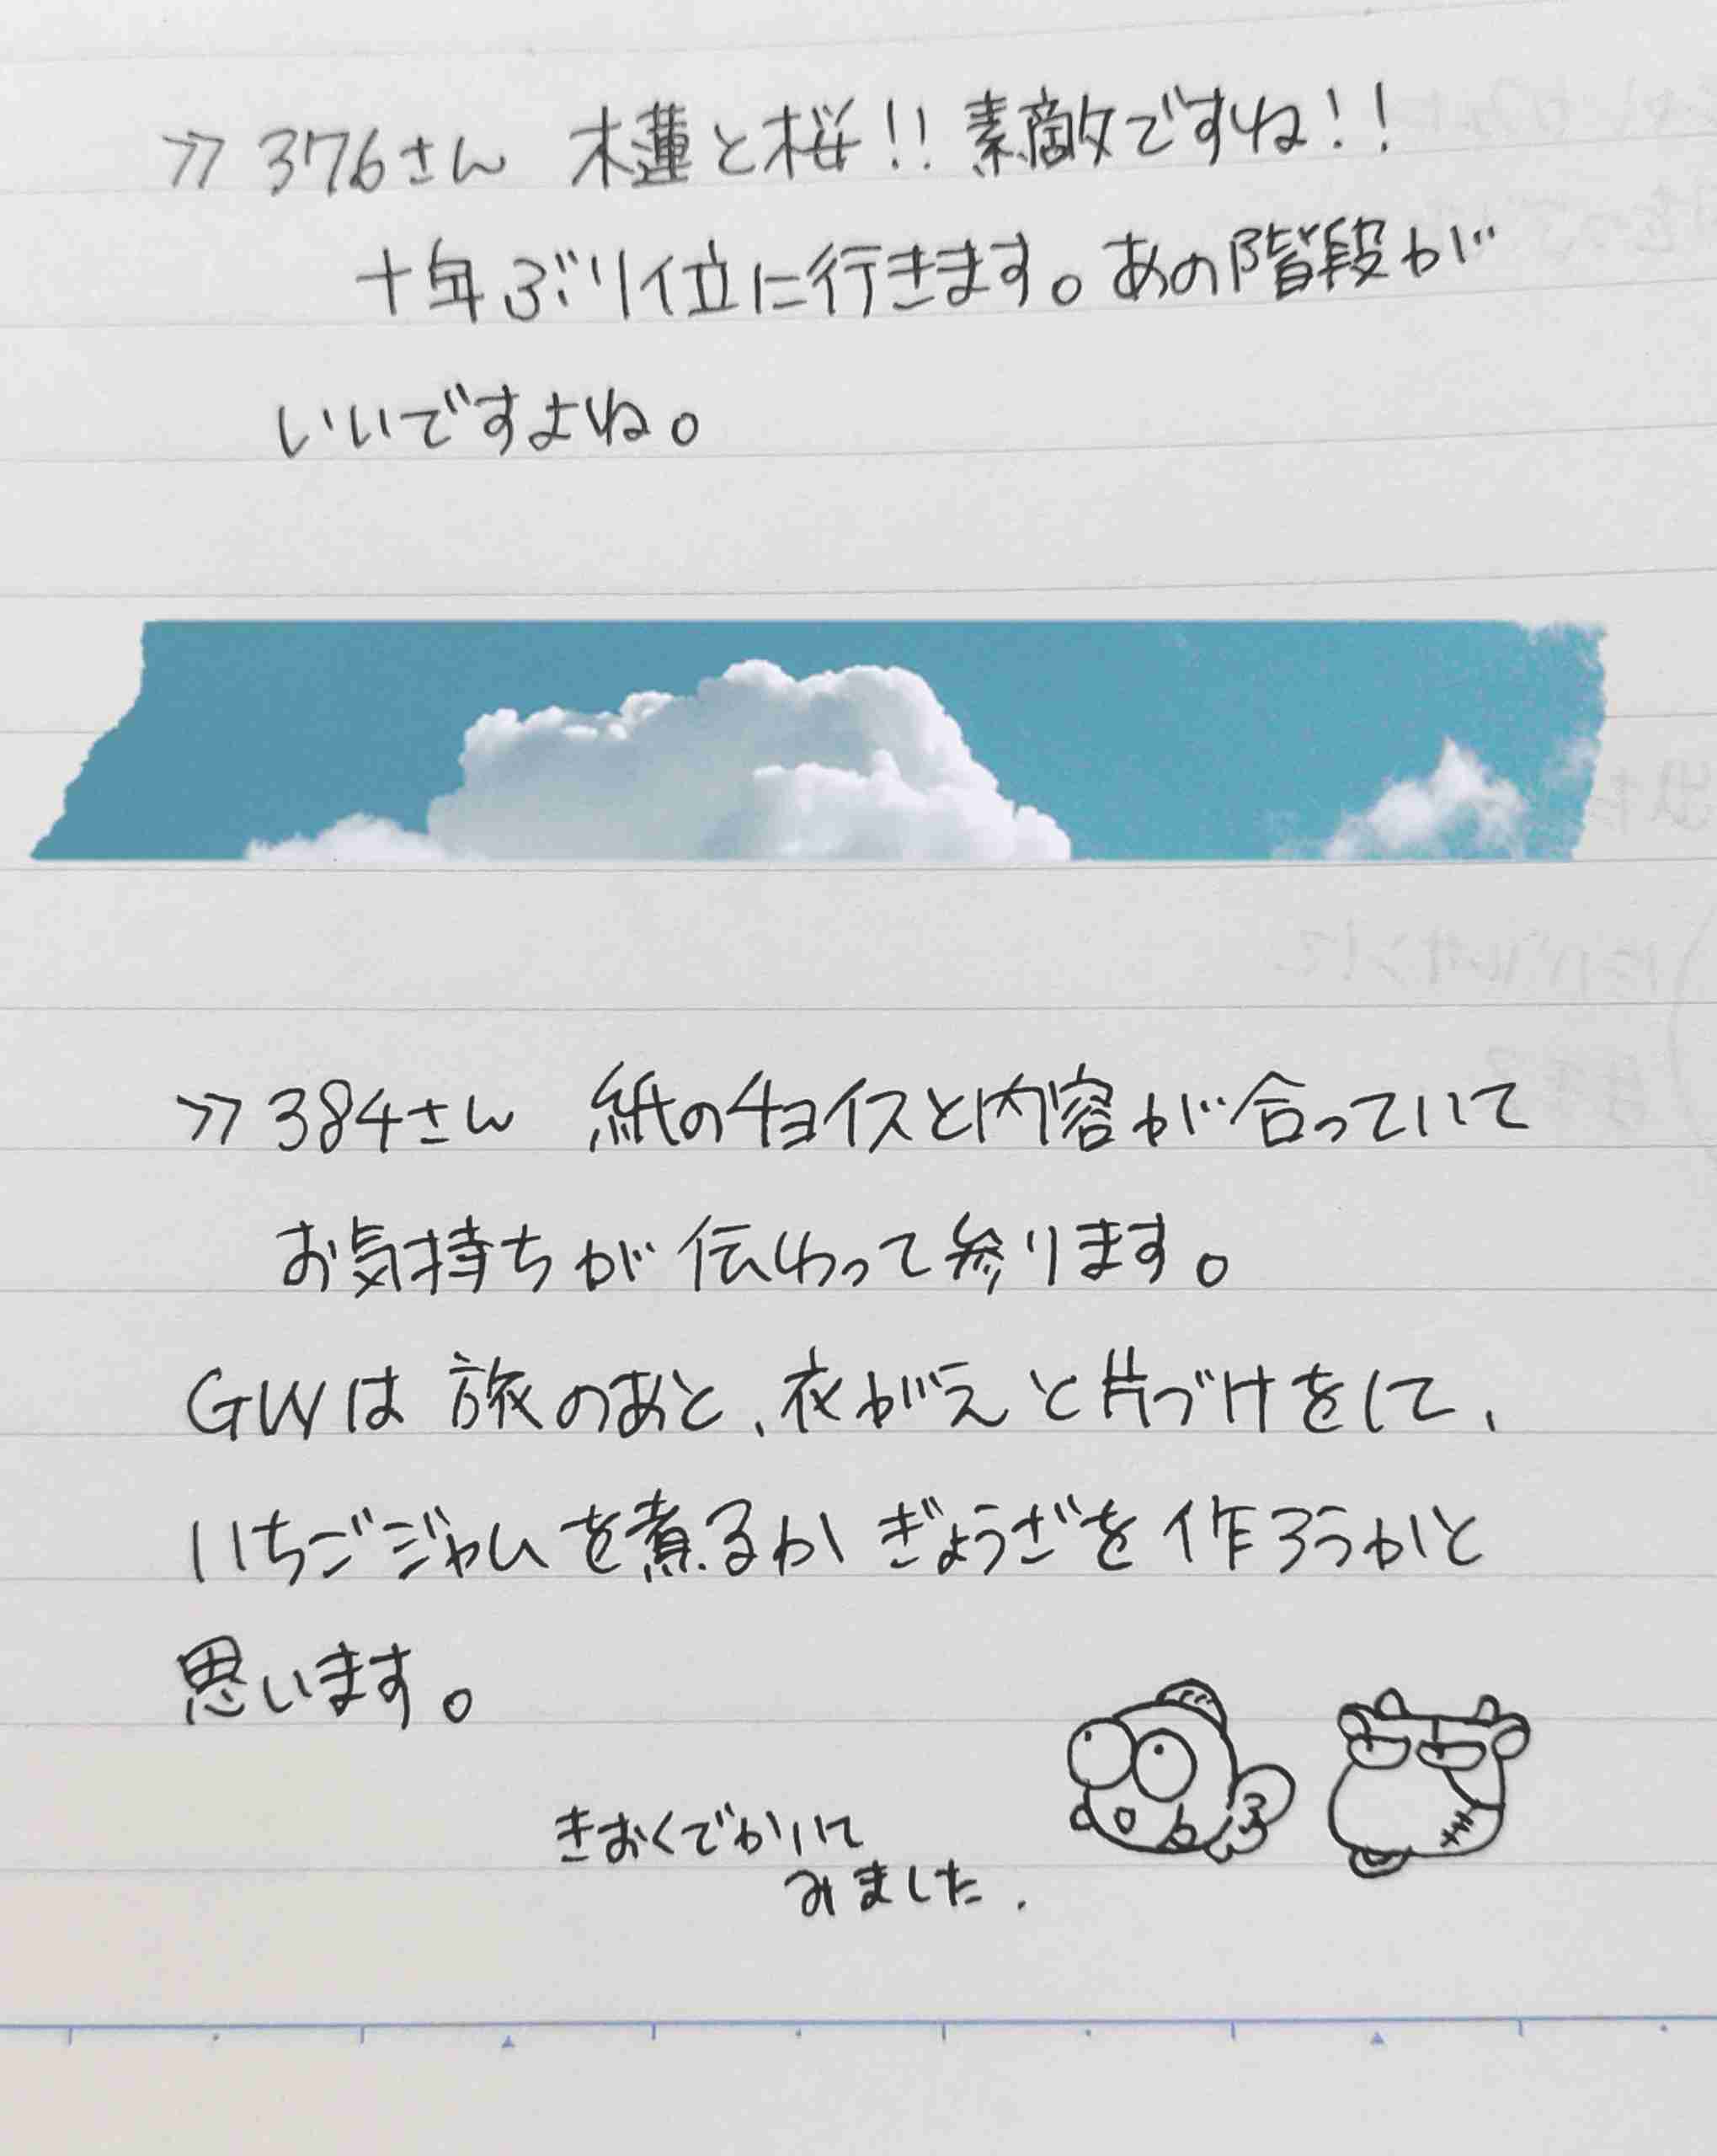 >>376さん 木蓮と桜!! 素敵ですね!!
十年ぶり位に行きます。あの階段が
いいですよね。
>>384さん 紙のチョイスと内容が合っていて
お気持ちが伝わって参ります。
GWは旅のあと、衣がえと片づけをして、
いちごジャムを煮るかぎょうざを作ろうかと
思います。
きおくでかいて
みました.